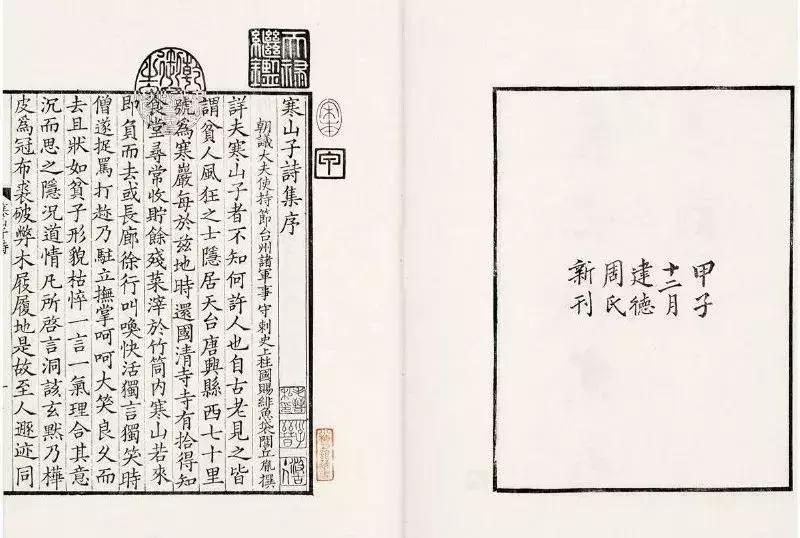 甲子
十二月
建德
周氏
新刊
天祿繼鑑
宋本
寒山子詩集序
朝議大夫使持節台州諸軍事守刺史上柱國賜緋魚袋閭丘胤撰
詳夫寒山子者不知何許人也自古老見之皆
謂貧人風狂之士隱居天台唐興縣西七十里
號爲寒巖每於兹地時還國清寺寺有拾得知
食堂尋常收貯餘殘菜滓於竹筒内寒山若來
即負而去或長廊徐行叫喚快活獨言獨笑時
僧遂捉罵打趂乃駐立撫掌呵呵大笑良久而
去且狀如貧子形貌枯悴一言一氣理合其意
沉而思之隱况道情凡所啓言洞該玄黙乃樺
皮爲冠布裘破弊木屐履地是故至人遯迹同